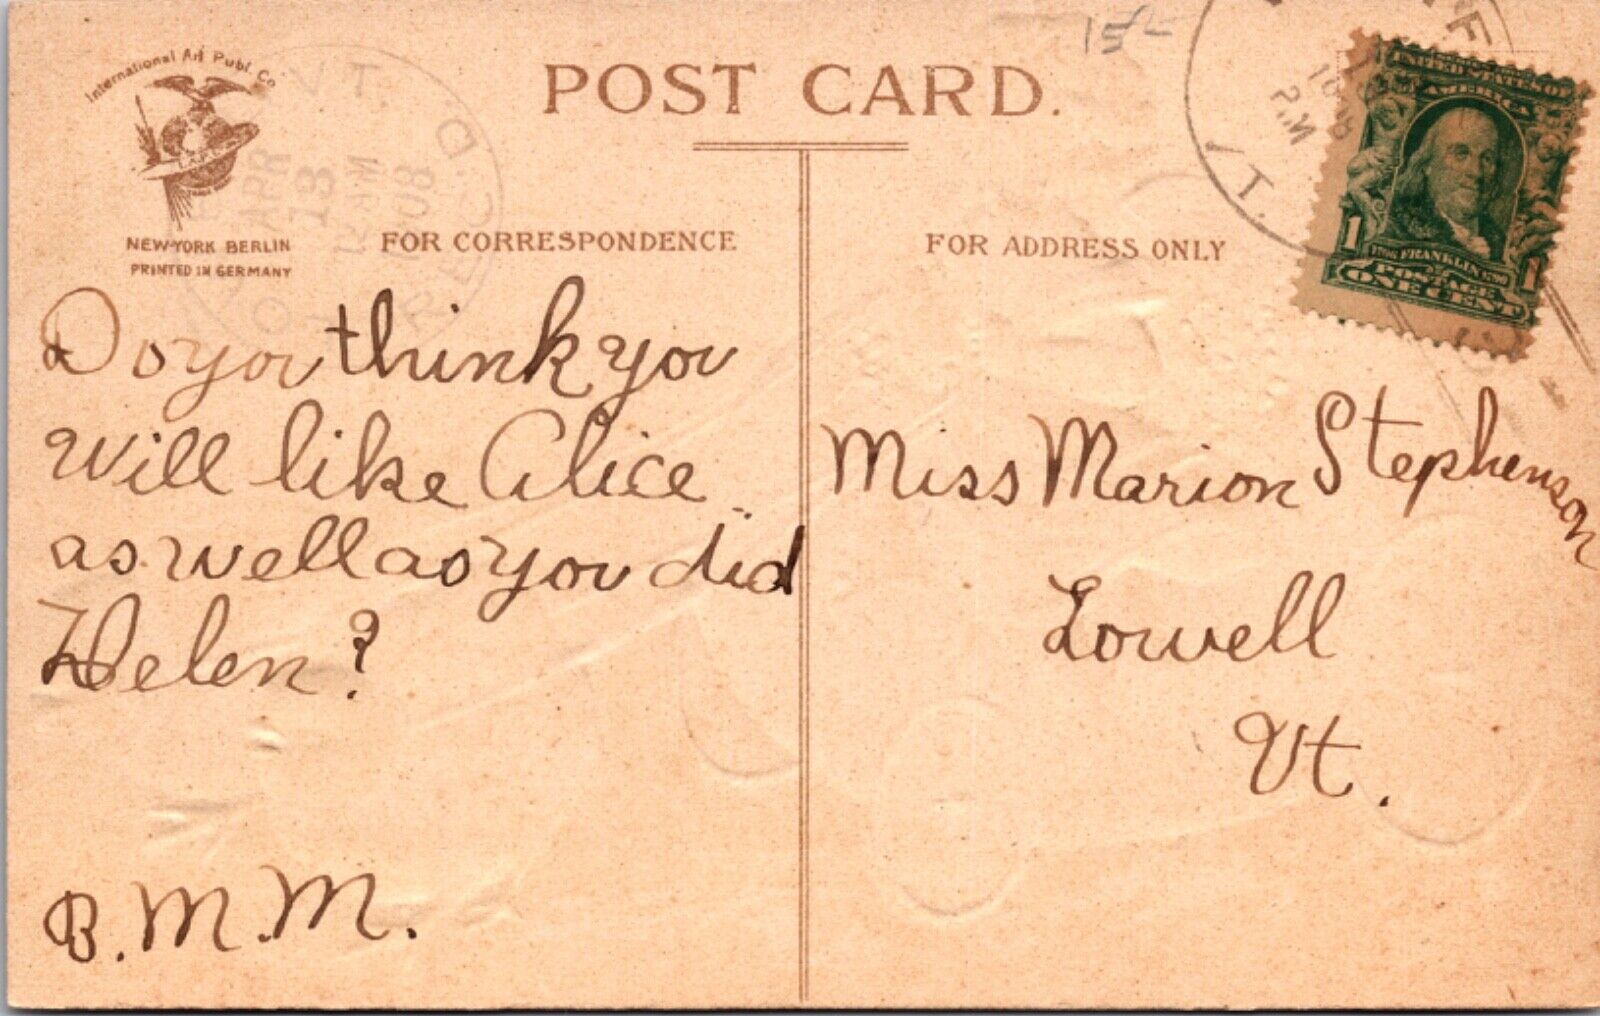 International Art Publ. Co.
NEW-YORK BERLIN
PRINTED IN GERMANY
POST CARD.
15-
FOR CORRESPONDENCE
FOR ADDRESS ONLY
VT.
APR
13
AM
1908
REC'D.
VT.
P.M
UNITED STATES OF
AMERICA
1 1
FRANKLIN
POSTAGE
ONE CENT
Do you think you
will like Alice
as well as you did
Helen?
B. M. M.
Miss Marion Stephenson
Lowell
Vt.